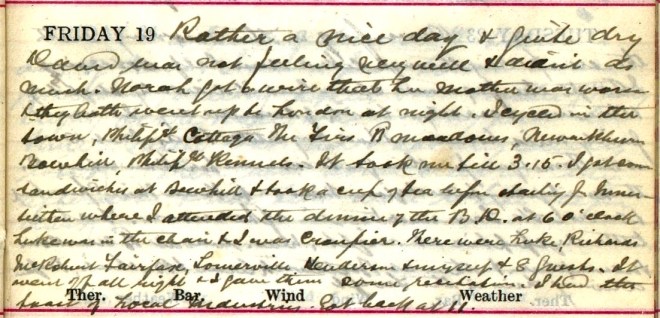 FRIDAY 19 Rather a nice day & quite dry
David was not feeling very well & didn't do
much. Norah got a wire that her mother was worse
& they both went up to London at night. I cycled in the
town, Cottage The Firs, meadows,
Bowhill, Kennels. It took me till 3.15. I got some
sandwiches at Bowhill & took a cup of tea before starting for
where I attended the dinner of the at 6 o'clock
Luke was in the chair & I was Croupier. There were Luke, Richards
Fairfax, Somerville Henderson & myself & 8 Guests. It
went off all right & I gave them some recitation. I had the
toast of Local Industries. Got back at 11.
Ther. Bar. Wind Weather